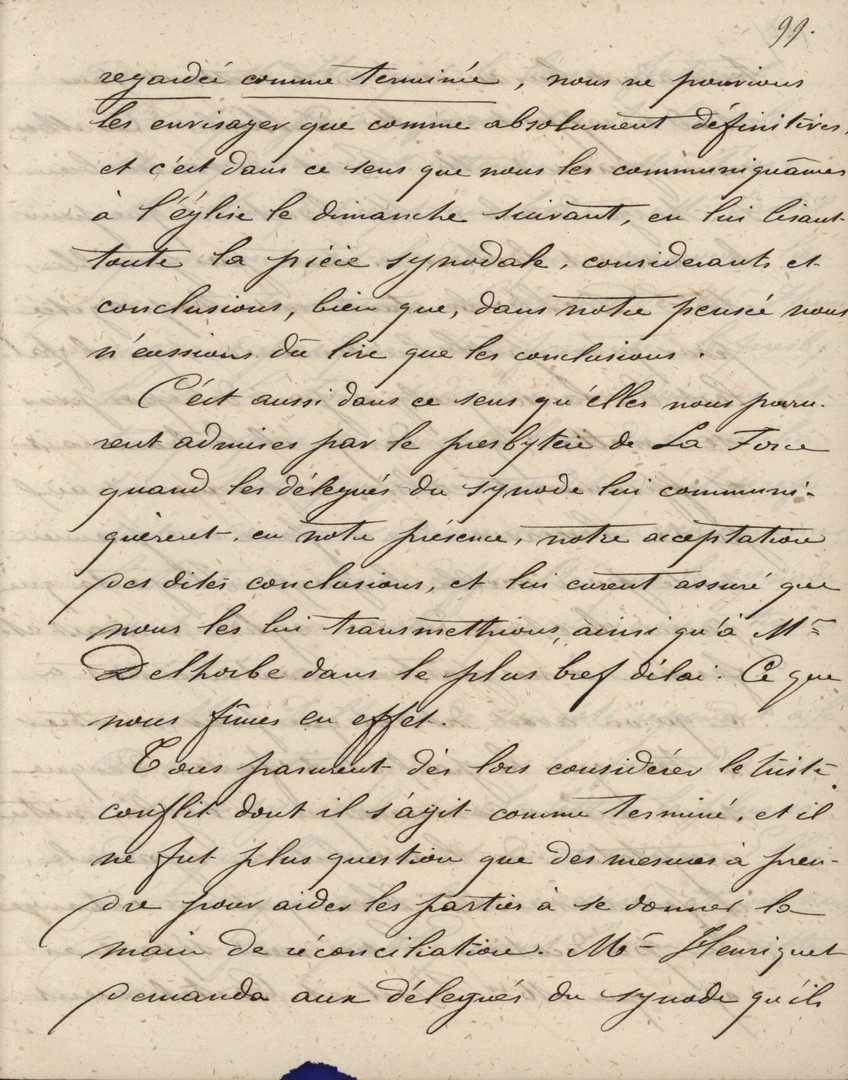 99.
regardée comme terminée, nous ne pouvions
les envisager que comme absolument définitives,
et c'est dans ce sens que nous les communiquâmes
à l'église le dimanche suivant, en lui lisant
toute la pièce synodale, considérants et
conclusions, bien que, dans notre pensée nous
n'eussions dû lire que les conclusions.
C'est aussi dans ce sens qu'elles nous paru-
rent admises par le presbytère de La Force
quand les délégués du synode lui communi-
quèrent, en notre présence, notre acceptation
des dites conclusions, et lui eurent assuré que
nous les lui transmettrions, ainsi qu'à Mr
Delhorbe dans le plus bref délai. Ce que
nous fîmes en effet.
Tous parurent dès lors considérer le triste
conflit dont il s'agit comme terminé, et il
ne fut plus question que des mesures à pren-
dre pour aider les parties à se donner la
main de réconciliation. Mr Henriquet
demanda aux délégués du synode qu'ils